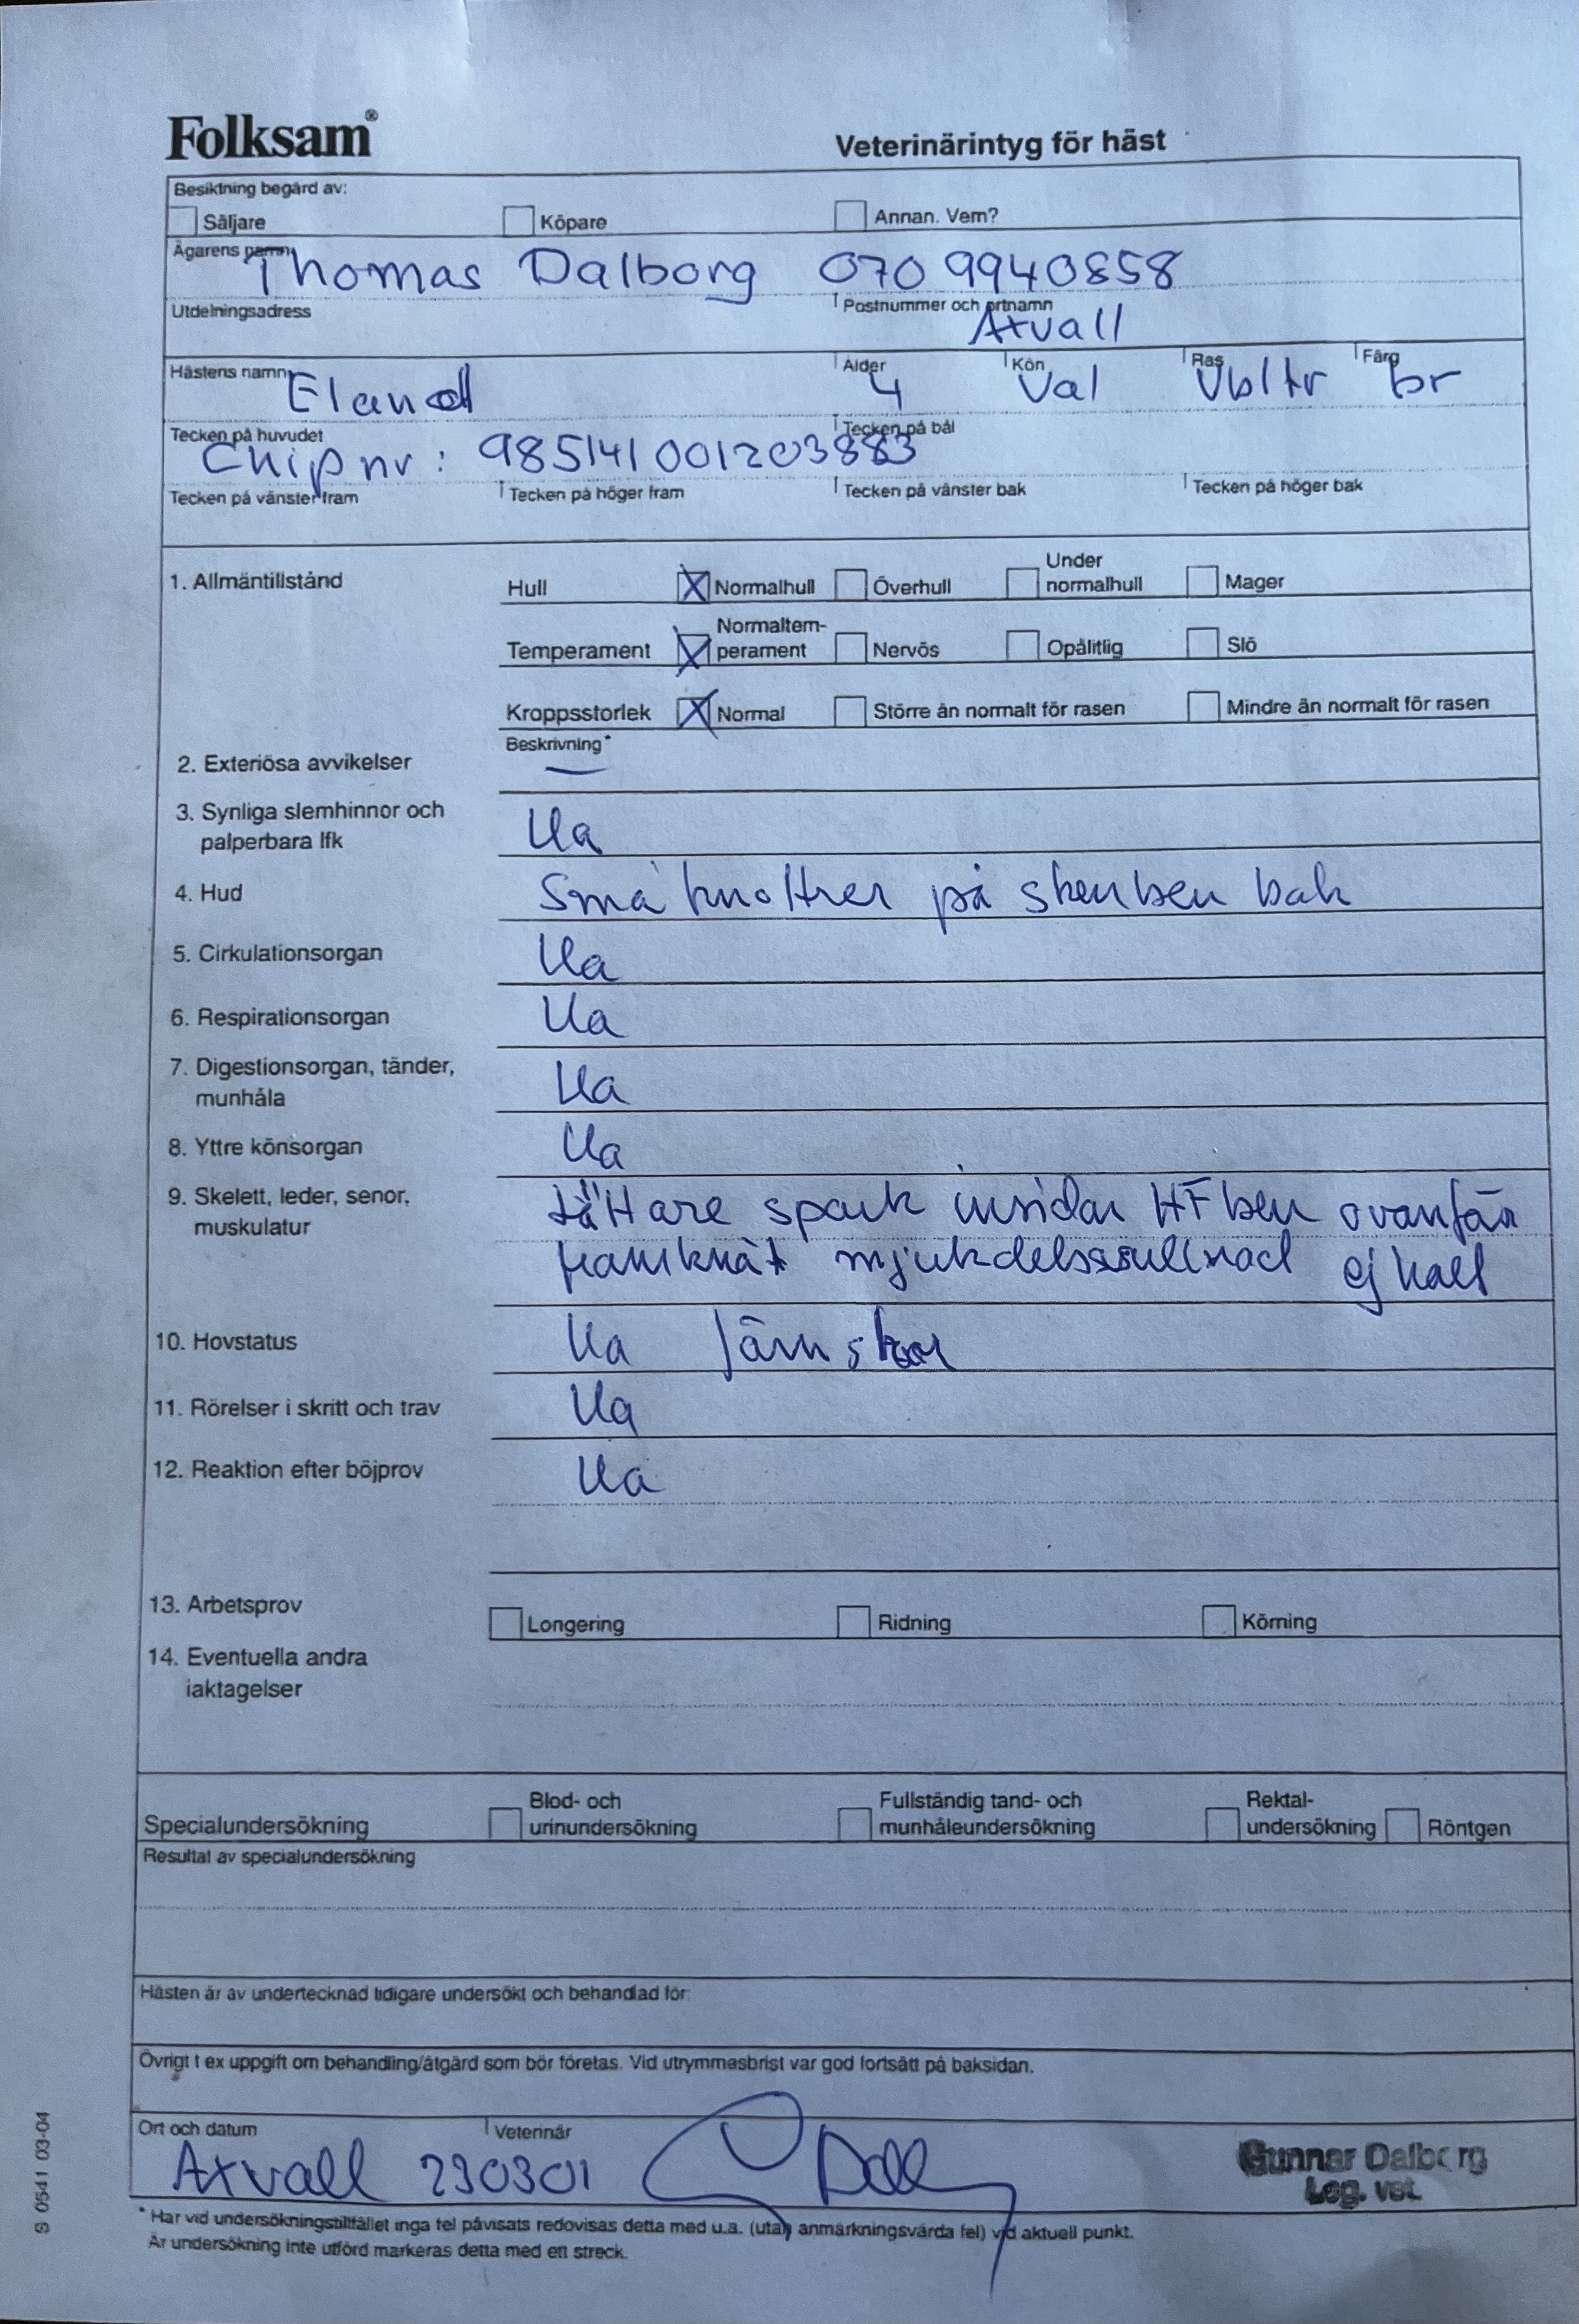 Folksam®
Veterinärintyg för häst
Besiktning begärd av:
Säljare Köpare Annan. Vem?
Ägarens namn
Thomas Dalborg 070 9940858
Utdelningsadress Postnummer och ortnamn
Axvall
Hästens namn Ålder Kön Ras Färg
Eland 4 Val Vbltr br
Tecken på huvudet Tecken på bål
Chip nr: 985141001203883
Tecken på vänster fram Tecken på höger fram Tecken på vänster bak Tecken på höger bak
1. Allmäntillstånd Hull X Normalhull Överhull Under normalhull Mager
Temperament X Normaltem-perament Nervös Opålitlig Slö
Kroppsstorlek X Normal Större än normalt för rasen Mindre än normalt för rasen
Beskrivning*
2. Exteriösa avvikelser —
3. Synliga slemhinnor och
palperbara lfk Ua
4. Hud Små knottrer på skenben bak
5. Cirkulationsorgan Ua
6. Respirationsorgan Ua
7. Digestionsorgan, tänder,
munhåla Ua
8. Yttre könsorgan Ua
9. Skelett, leder, senor, lättare spark insidan HF ben ovanför
muskulatur framknät mjukdelssvullnad ej halt
10. Hovstatus Ua Järnskor
11. Rörelser i skritt och trav Ua
12. Reaktion efter böjprov Ua
13. Arbetsprov Longering Ridning Körning
14. Eventuella andra
iaktagelser
Specialundersökning Blod- och urinundersökning Fullständig tand- och munhåleundersökning Rektal-undersökning Röntgen
Resultat av specialundersökning
Hästen är av undertecknad tidigare undersökt och behandlad för:
Övrigt t ex uppgift om behandling/åtgärd som bör företas. Vid utrymmesbrist var god fortsätt på baksidan.
Ort och datum Veterinär
Axvall 230301 Gunnar Dalborg
Leg. vet.
* Har vid undersökningstillfället inga fel påvisats redovisas detta med u.a. (utan anmärkningsvärda fel) vid aktuell punkt.
Är undersökning inte utförd markeras detta med ett streck.
S 0541 03-04